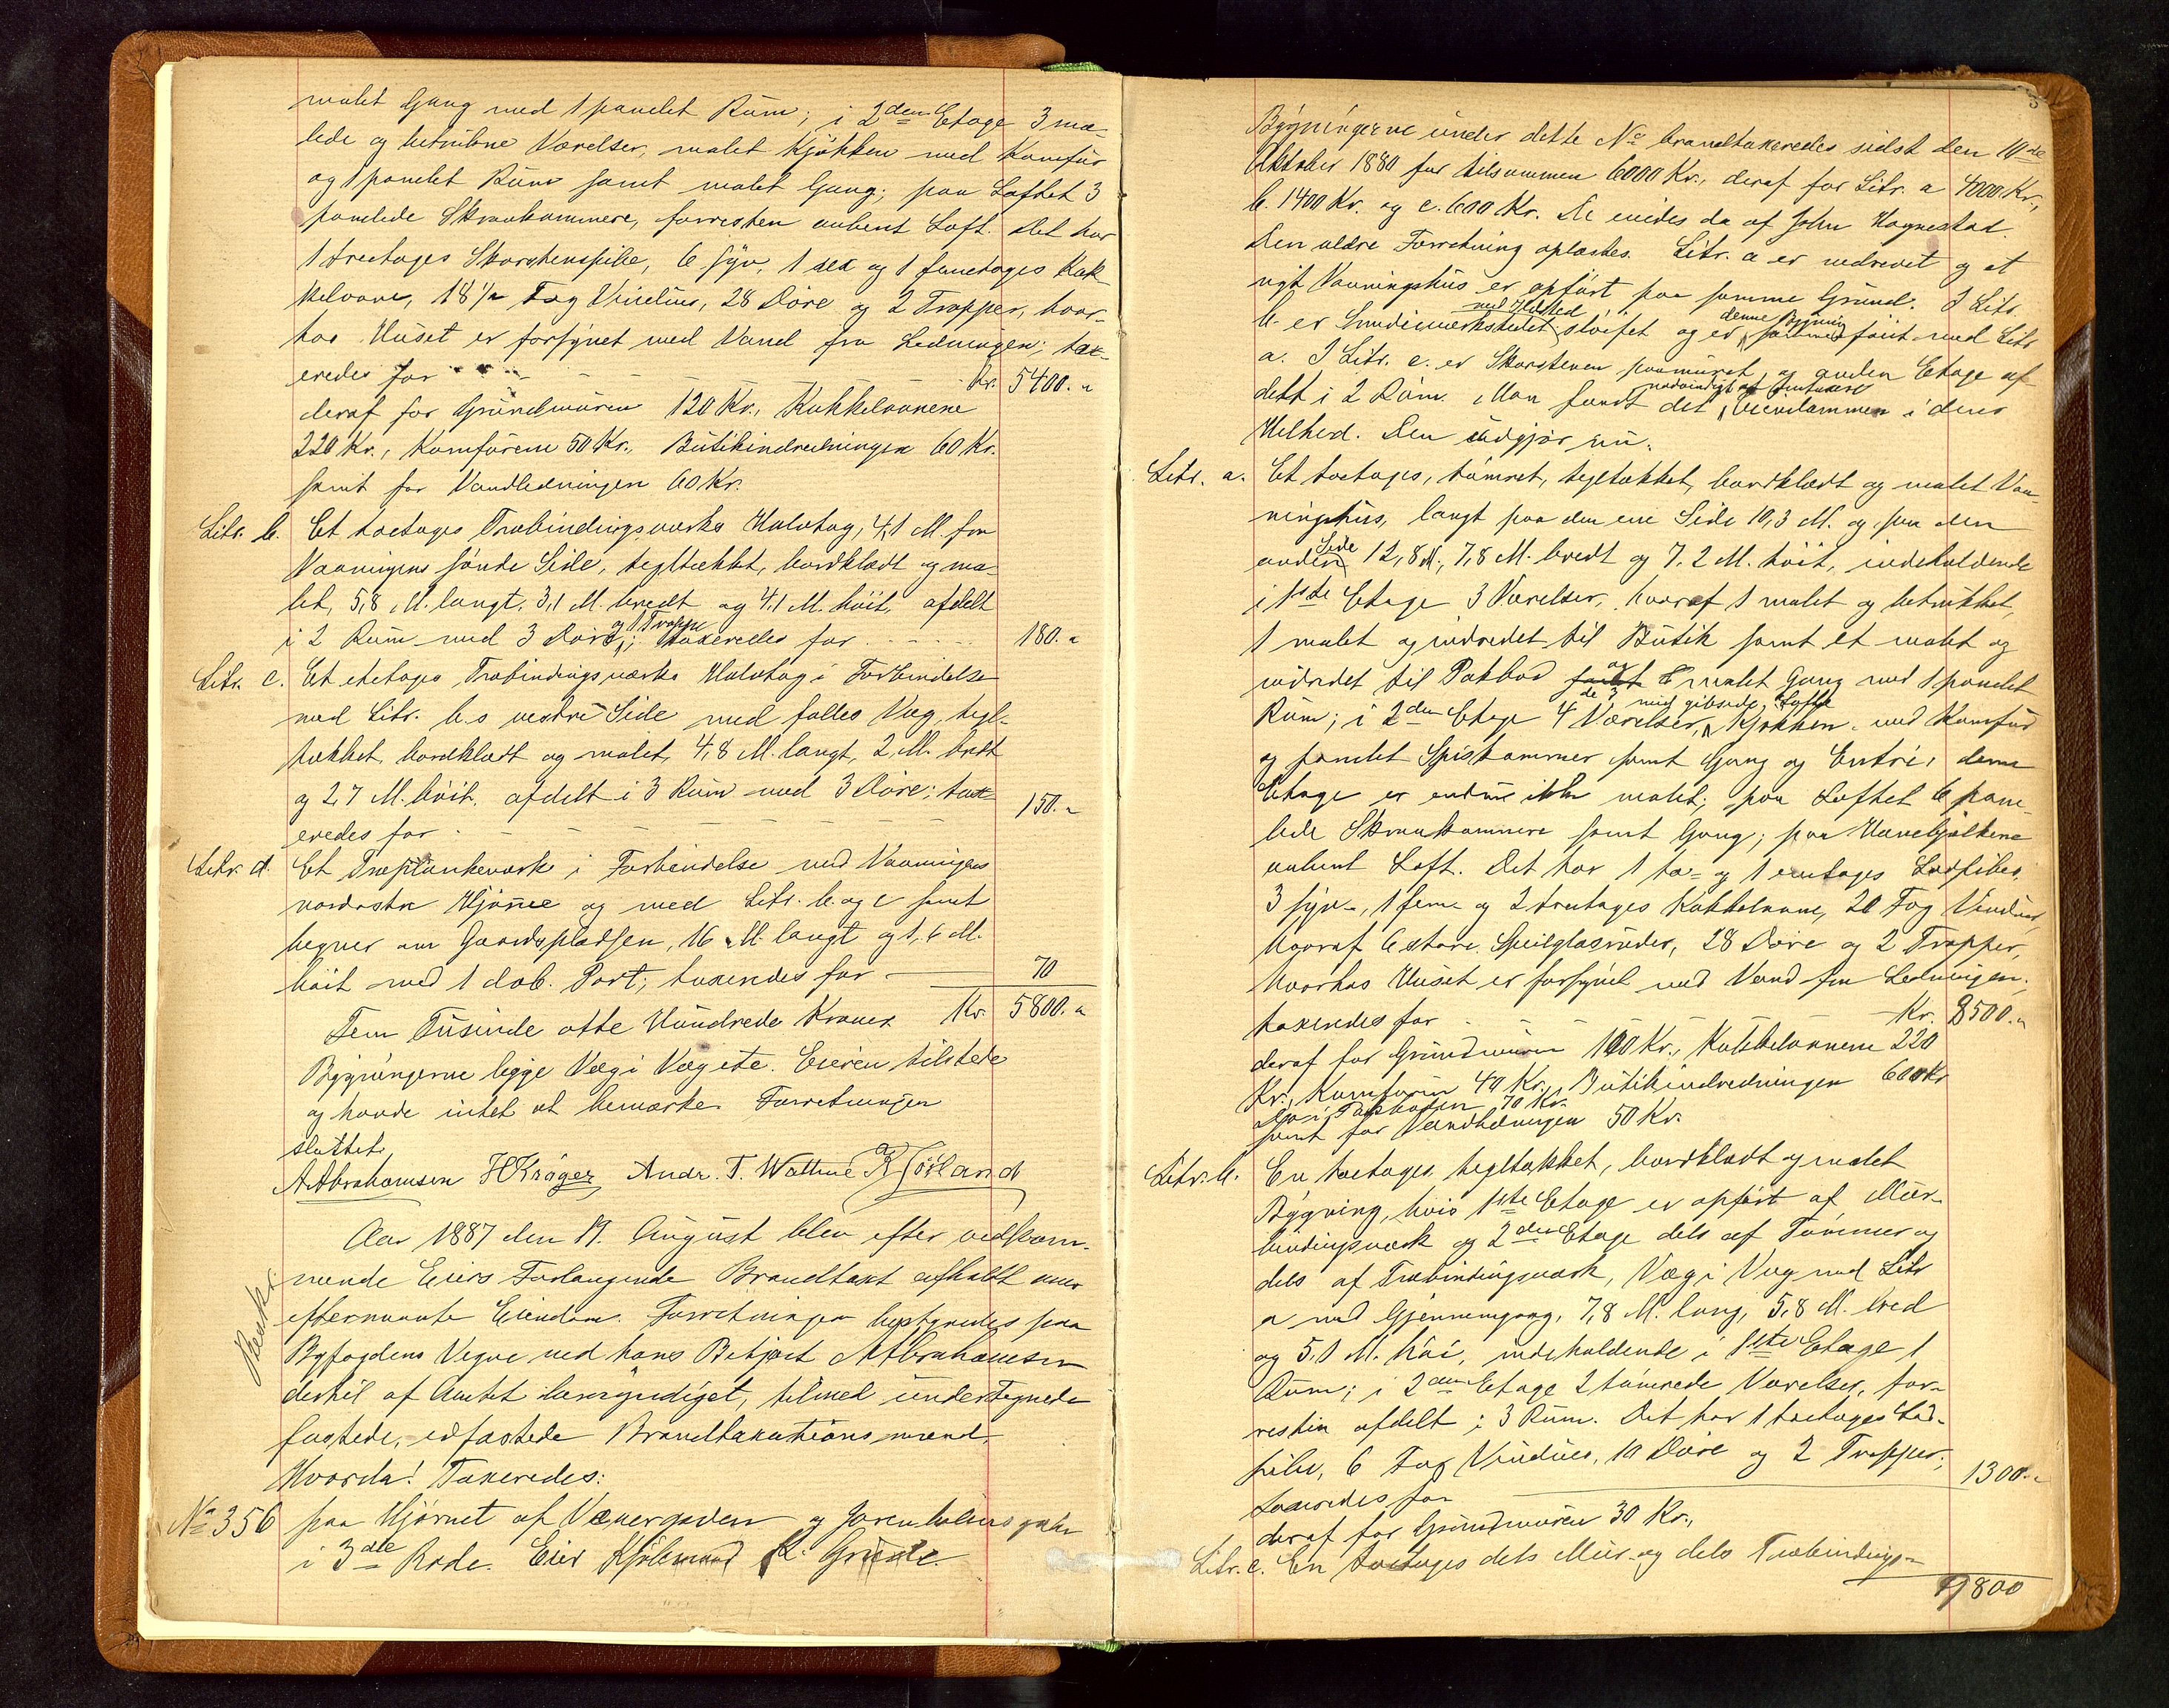 malet Gang med 1 panelet Rum; i 2den Etage 3 ma-
lede og betrukne Værelser, malet Kjøkken med Komfur
og 1 panelet Rum samt malet Gang; paa Loftet 3
panelede Skraakammere, forresten aabent Loft. Det har
1 treetages Skorstenspibe, 6 syv, 1 sex og 1 femetages Kak-
kelovne, 18 1/2 Fag Vinduer, 28 Døre og 2 Trapper, hvor-
hos Huset er forsynet med Vand fra Ledningen; tax-
eredes for - - - - - Kr. 5400. "
deraf for Grundmuren 120 Kr., Kakkelovnene
220 Kr., Komfurene 50 Kr., Butikindredningen 60 Kr.
samt for Vandledningen 60 Kr.
Litr. b. Et toetages Træbindingsværks Halvtag, 4,1 M. fra
Vaaningens søndre Side, tegltækket, bordklædt og ma-
let, 5,8 M. langt, 3,1 M. bredt og 4,1 M. høit, afdelt
i 2 Rum med 3 Døre og 1 Trappe; taxeredes for - - - 180. "
Litr. c. Et etetages Træbindingsværks Halvtag i Forbindelse
med Litr. b.s vestre Side med fælles Væg, tegl-
tækket, bordklædt og malet, 4,8 M. langt, 2 M. bredt
og 2,7 M. høit, afdelt i 3 Rum med 3 Døre; tax-
eredes for - - - - - 150. "
Litr. d. Et Træplankeværk i Forbindelse med Vaaningens
nordøstre Hjørne og med Litr. b. og c samt
hegner om Gaardspladsen, 16 M. langt og 1,6 M.
høit med 1 dob. Port; taxeredes for - 70
Fem Tusinde otte Hundrede Kroner Kr. 5800. "
Bygningerne ligge Væg i Væg etc. Eieren tilstede
og havde intet at bemærke. Forretningen
sluttet.
A. Abrahamsen H Krøger Andr. T. Wathne R Gørland
Aar 1887 den 19. August blev efter vedkom-
mende Eiers Forlangende Brandtaxt afholdt over
efternævnte Eiendom. Forretningen bestyredes paa
Byfogdens Vegne ved hans Betjent A Abrahamsen
dertil af Amtet bemyndiget, tilmed undertegnede
fastede, edfæstede Brandtaxationsmænd.
Hvorda! Taxeredes:
No 356 paa Hjørnet af Vævergaden og Jorenholmsgaden
i 3die Rode. Eier Kjøbmand K. Grude.
Bygningerne under dette No brandtaxeredes sidst den 10de
Oktober 1880 for tilsammen 6000 Kr., deraf for Litr. a 4000. Kr.,
b. 1400 Kr. og c. 600 Kr. De eiedes da af John Hognestad.
Den ældre Forretning oplæstes. Litr. a er nedrevet og et
nyt Vaaningshus er opført paa samme Grund. I Litr.
b. er Smedieværkstedet med Ildsted sløifet og er denne Bygning sammenføiet med Litr
a. I Litr. c. er Skorstenen paamuret og anden Etage af-
delt i 2 Rum. Man fandt det nødvendigt at omtaxere Eiendommen i dens
Helhed. Den udgjør nu:
Litr. a. Et toetages, tømret, tegltækket, bordklædt og malet Vaa-
ningshus, langt paa den ene Side 10,3 M. og paa den
anden Side 12,8 M., 7,8 M. bredt og 7,2 M. høit, indeholdende
i 1ste Etage 3 Værelser, hvoraf 1 malet og betrukket,
1 malet og indredet til Butik samt et malet og
indredet til Pakbod og malet Gang med 1 panelet
Rum; i 2den Etage 4 Værelser, de 3 med gibsede Lofte, Kjøkken med Komfur
og panelet Spiskammer samt Gang og Entré; denne
Etage er endnu ikke malet; paa Loftet 6 pane-
lede Skraakammere samt Gang; paa Hanebjelkene
aabent Loft. Det har 1 to- og 1 eetages Ledpiber,
3 syv-, 1 fem- og 2 treetages Kakkelovne, 20 Fag Vinduer,
hvoraf 6 store Speilglasruder, 28 Døre og 2 Trapper,
hvorhos Huset er forsynet med Vand fra Ledningen;
taxeredes for - - - - Kr. 8500. "
deraf for Grundmuren 100 Kr., Kakkelovnene 220
Kr., Komfuren 40 Kr., Butikindredningen 600 Kr
Do i Pakboden 70 Kr.
samt for Vandledningen 50 Kr.
Litr. b. En toetages, tegltækket, bordklædt og malet
Bygning, hvis 1ste Etage er opført af Mur-
bindingsværk og 2den Etage dels af Tømmer og
dels af Træbindingsværk, Væg i Væg med Litr
a med Gjennemgang, 7,8 M. lang, 5,8 M. bred
og 5,1 M. høi, indeholdende i 1ste Etage 1
Rum; i 2den Etage 2 tømrede Værelser, for-
resten afdelt i 3 Rum. Det har 1 toetages Led-
pibe, 6 Fag Vinduer, 10 Døre og 2 Trapper;
taxeredes for 1300. "
deraf for Grundmuren 30 Kr.,
Litr. c. En toetages dels Mur- og dels Træbindings-
9800